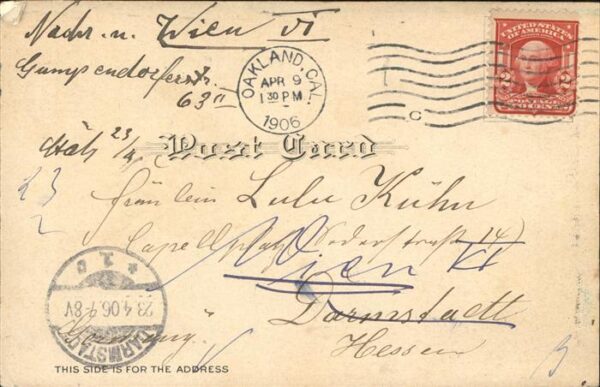 Nachr. n. Wien VI
Gumpendorferstr.
63 II
OAKLAND, CAL.
APR 9
1 30 PM
1906
C
UNITED STATES
OF AMERICA
2 2
POSTAGE
TWO CENTS
23/4
Post Card
23
2
Fräulein Lulu Kühn
Capellplatz
14)
Wien VI
Darmstadt
Hessen
Germany
DARMSTADT
* 1. c
23.4.06.7-8V.
THIS SIDE IS FOR THE ADDRESS